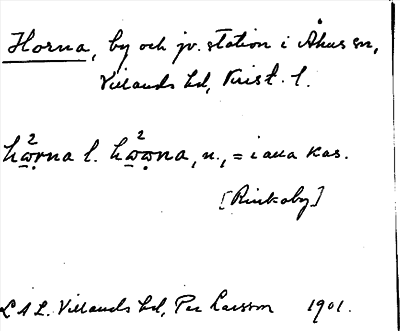 Horna, by och jv. station i Åhus sn,
Villands hd, Krist. l.
hω²rna l. hω²ωna, n., = i alla kas.
[Rinkaby]
L A L. Villands hd, Per Larsson 1901.